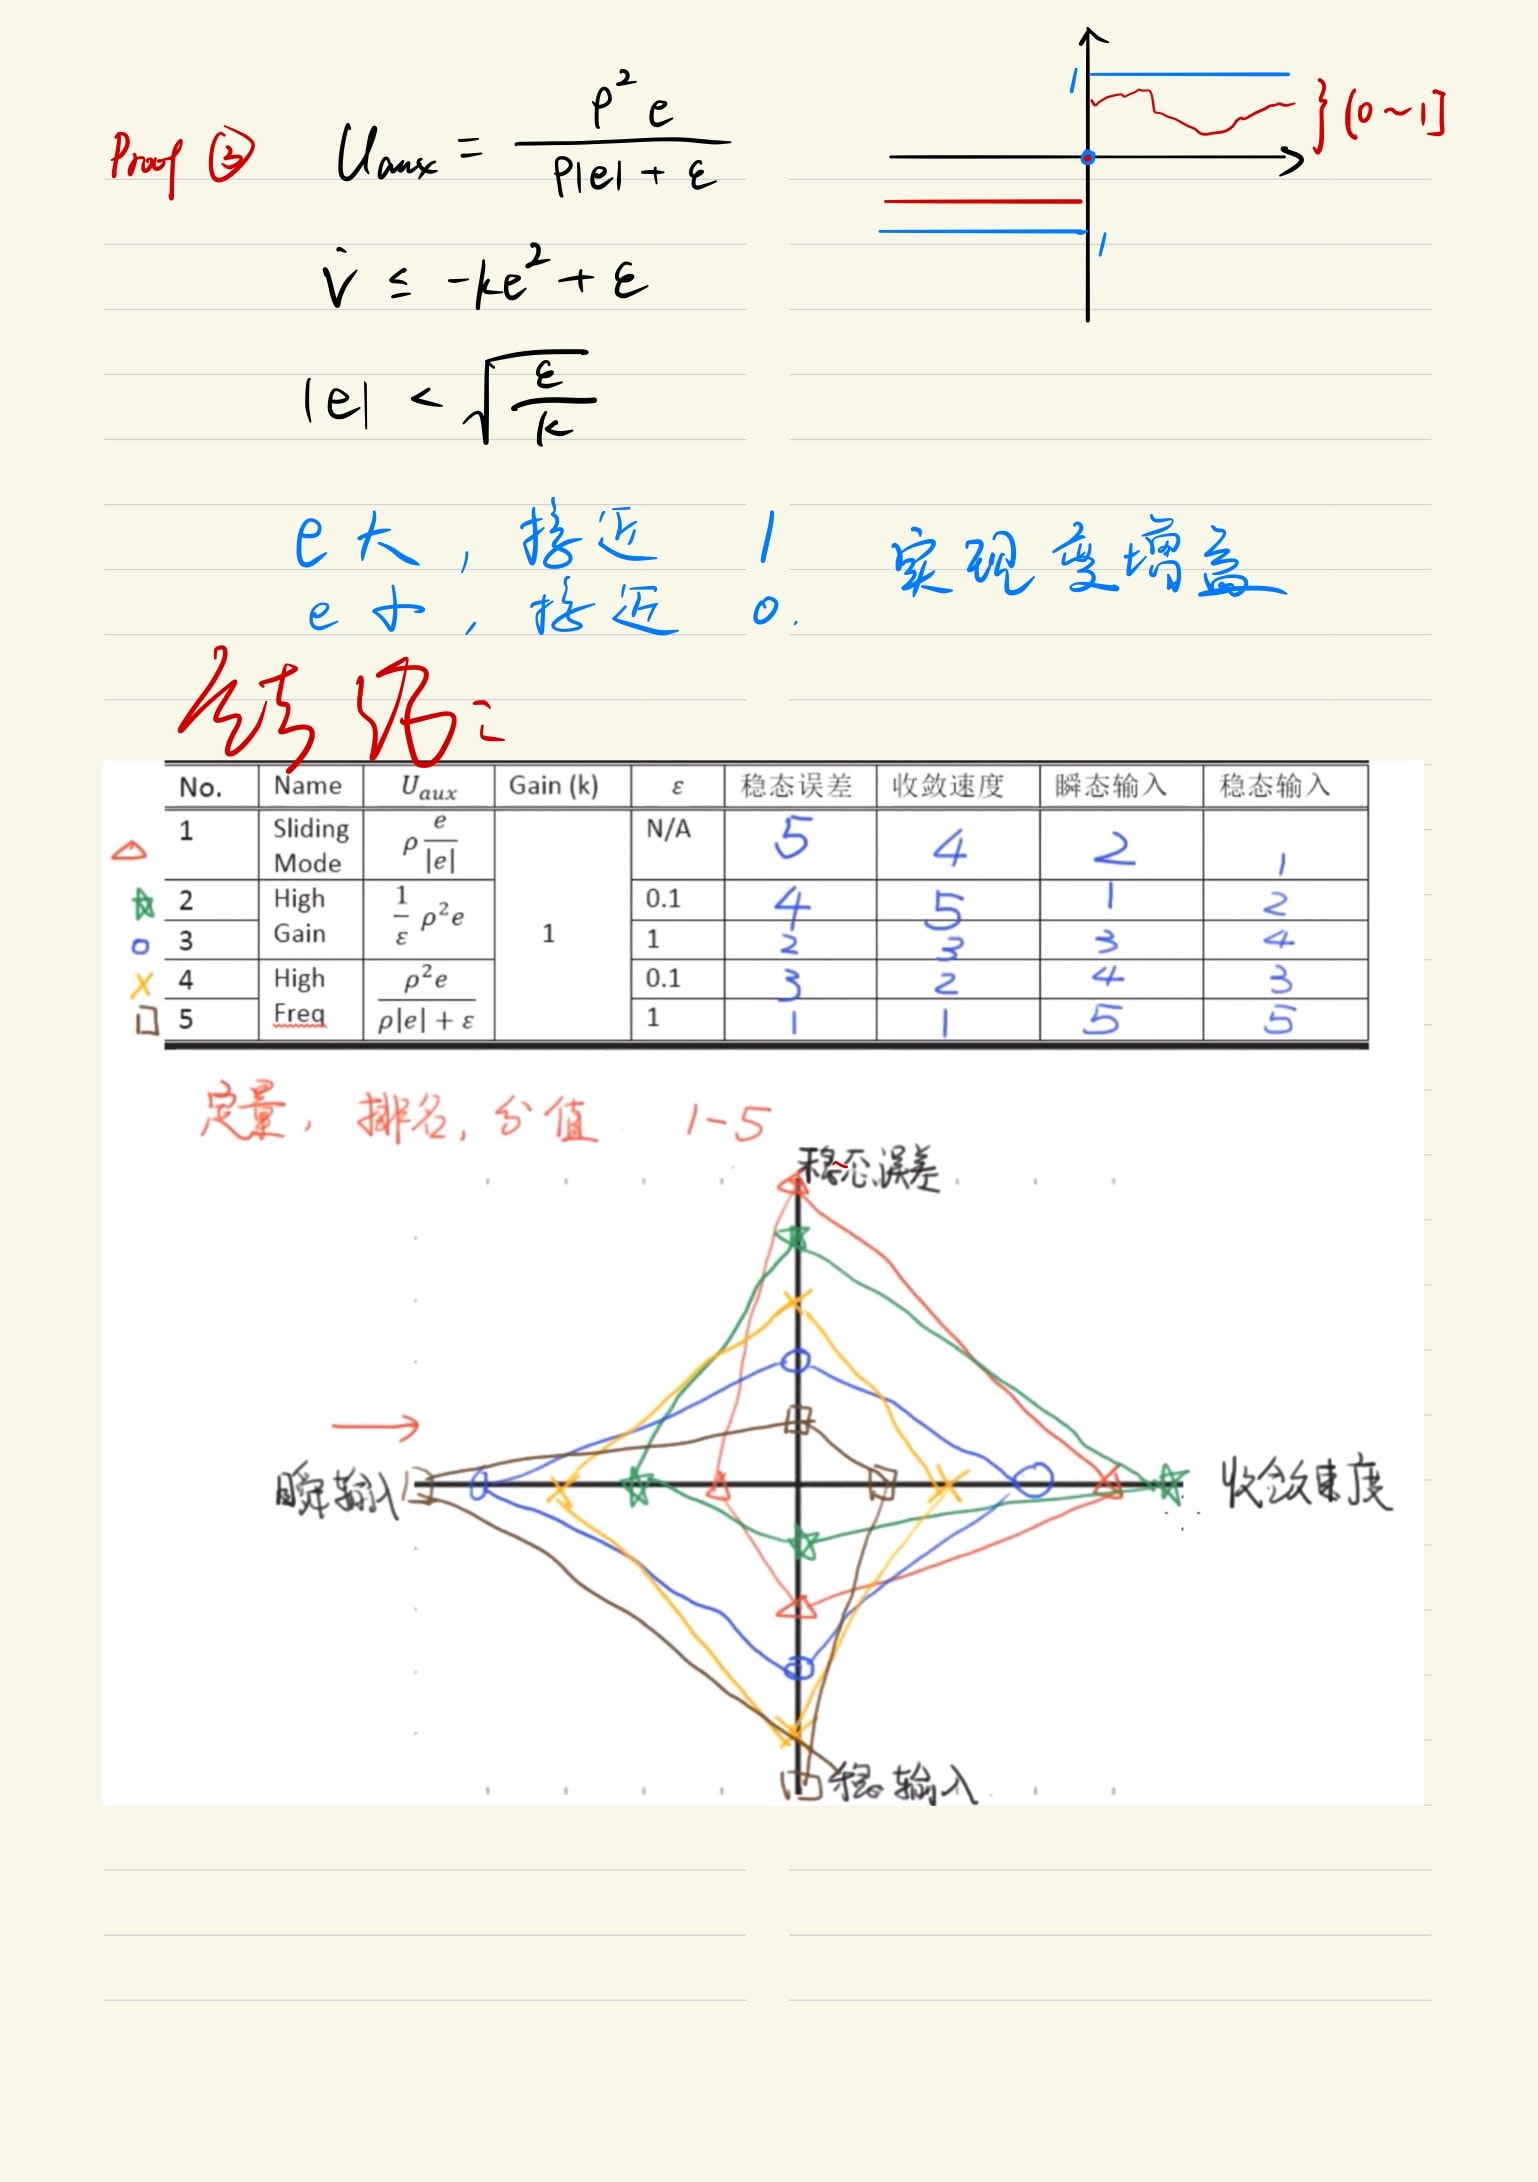 Proof ③ Uaux = ρ²e / (ρ|e| + ε)
1
} (0 ~ 1]
1
V̇ ≤ -ke² + ε
|e| < √(ε/k)
e大, 接近 1 实现变增益
e小, 接近 0.
总结:
No. Name U_aux Gain (k) ε 稳态误差 收敛速度 瞬态输入 稳态输入
1 Sliding Mode ρ e/|e| 1 N/A 5 4 2 1
2 High Gain 1/ε ρ²e 0.1 4 5 1 2
3 1 2 3 3 4
4 High Freq ρ²e / (ρ|e| + ε) 0.1 3 2 4 3
5 1 1 1 5 5
定量, 排名, 分值 1-5
稳态误差
瞬输入
收敛速度
稳输入